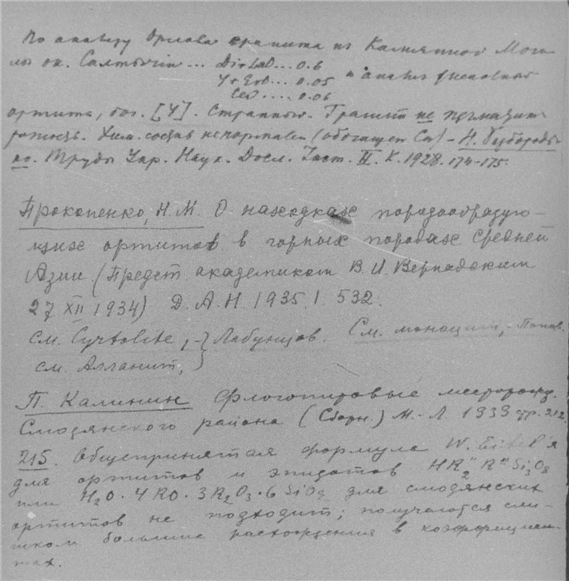 По анализу Орлова гранита из Каменной Моги-
лы ок. Салтычи ... Di o La O ... 0.6
Yo Er O ... 0.05 и анализ
Ce O .... 0.06
ортита, бог. [Y]. Гранит не пегматит
Хим. состав ненормален (обогащен Ca) - Н. Безбородь-
ко. Труды Укр. Наук. Досл. Инст. II. К. 1928. 174-175.
Прокопенко, Н.М. О находках породообразую-
щих ортитов в горных породах Средней
Азии (Предст академиком В.И. Вернадским
27 XII 1934) Д.А.Н 1935. I. 532.
см. Cyrtolite, } Лабунцов. См. монацит, Попов.
см. Алланит, }
П. Калинин Флогопитовые месторожд.
Слюдянского района (Сборн.) М.-Л 1933 стр. 212
215. Общепринятая формула W. Eitel'я
для ортитов и эпидотов HR2'''R''Si3O8
или H2O · 4RO · 3R2O3 · 6SiO2 для слюдянских
ортитов не подходит; получаются сли-
шком большие расхождения в коэффициен-
тах.